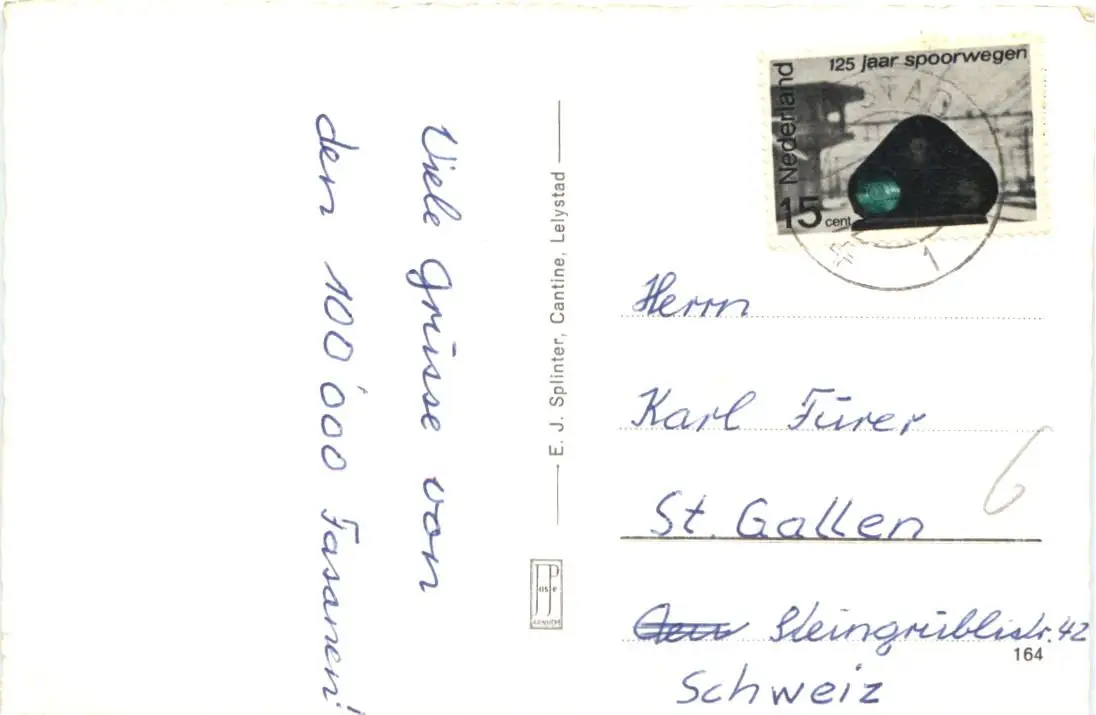 Viele Grüsse von
den 100'000 Fasanen!
E. J. Splinter, Cantine, Lelystad
JosPé
ARNHEM
125 jaar spoorwegen
Nederland
15 cent
STAD
1
Herrn
Karl Fürer
St. Gallen
6
Steingrüblistr. 42
164
Schweiz